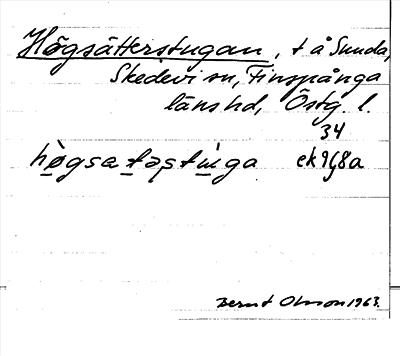 Högsätterstugan, t å Sunda,
Skedevi sn, Finspånga
läns hd, Östg. l.
34
høgsatəstuga ek 968a
Bernt Olsson 1963.